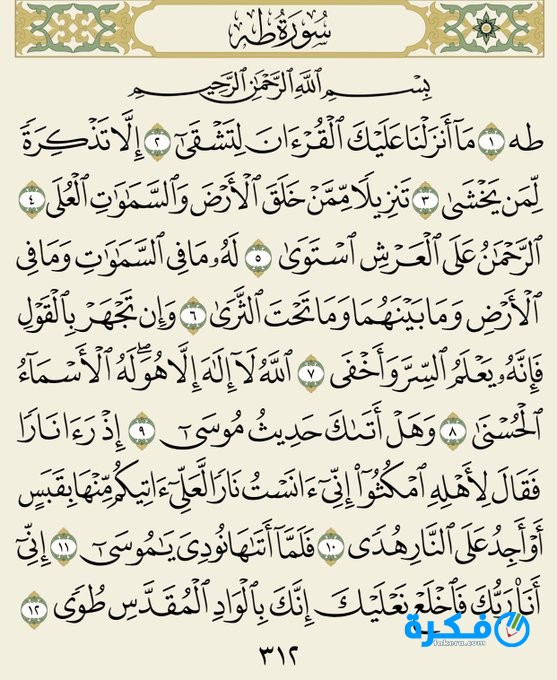 سُورَةُ طه
بِسْمِ ٱللَّهِ ٱلرَّحْمَٰنِ ٱلرَّحِيمِ
طه ١ مَآ أَنزَلْنَا عَلَيْكَ ٱلْقُرْءَانَ لِتَشْقَىٰٓ ٢ إِلَّا تَذْكِرَةً
لِّمَن يَخْشَىٰ ٣ تَنزِيلًا مِّمَّنْ خَلَقَ ٱلْأَرْضَ وَٱلسَّمَٰوَٰتِ ٱلْعُلَى ٤
ٱلرَّحْمَٰنُ عَلَى ٱلْعَرْشِ ٱسْتَوَىٰ ٥ لَهُۥ مَا فِي ٱلسَّمَٰوَٰتِ وَمَا فِي
ٱلْأَرْضِ وَمَا بَيْنَهُمَا وَمَا تَحْتَ ٱلثَّرَىٰ ٦ وَإِن تَجْهَرْ بِٱلْقَوْلِ
فَإِنَّهُۥ يَعْلَمُ ٱلسِّرَّ وَأَخْفَى ٧ ٱللَّهُ لَآ إِلَٰهَ إِلَّا هُوَۖ لَهُ ٱلْأَسْمَآءُ
ٱلْحُسْنَىٰ ٨ وَهَلْ أَتَىٰكَ حَدِيثُ مُوسَىٰٓ ٩ إِذْ رَءَا نَارًا
فَقَالَ لِأَهْلِهِ ٱمْكُثُوٓا۟ إِنِّيٓ ءَانَسْتُ نَارًا لَّعَلِّيٓ ءَاتِيكُم مِّنْهَا بِقَبَسٍ
أَوْ أَجِدُ عَلَى ٱلنَّارِ هُدًى ١٠ فَلَمَّآ أَتَىٰهَا نُودِيَ يَٰمُوسَىٰٓ ١١ إِنِّيٓ
أَنَا۠ رَبُّكَ فَٱخْلَعْ نَعْلَيْكَ إِنَّكَ بِٱلْوَادِ ٱلْمُقَدَّسِ طُوًى ١٢
فكرة
fakera.com
٣١٢